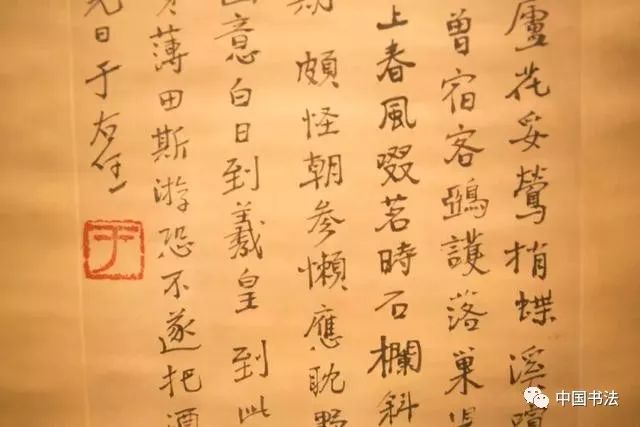 廬花妥鶯捎蝶溪喧
曾宿客鵶護落巢
上春風啜茗時石欄斜
頗怪朝參懶應耽野
意白日到羲皇到此
薄田斯游恐不遂把酒
日于右任
于
中国书法